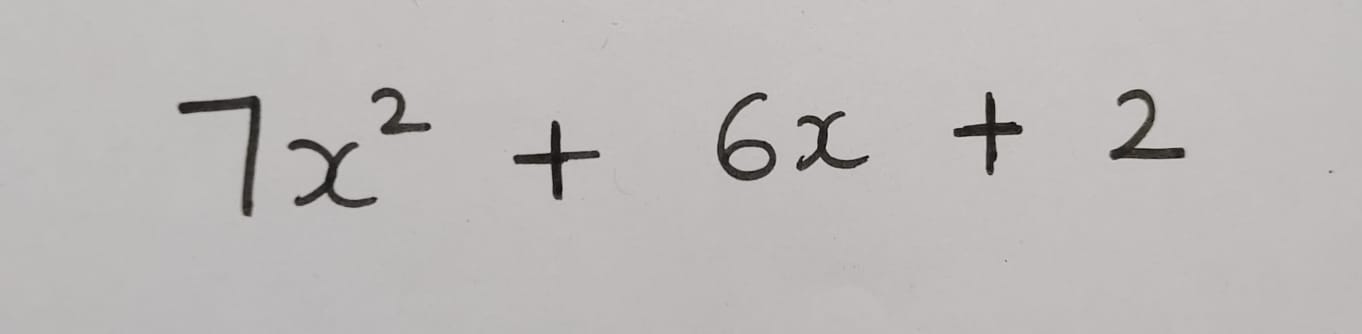 7x² + 6x + 2